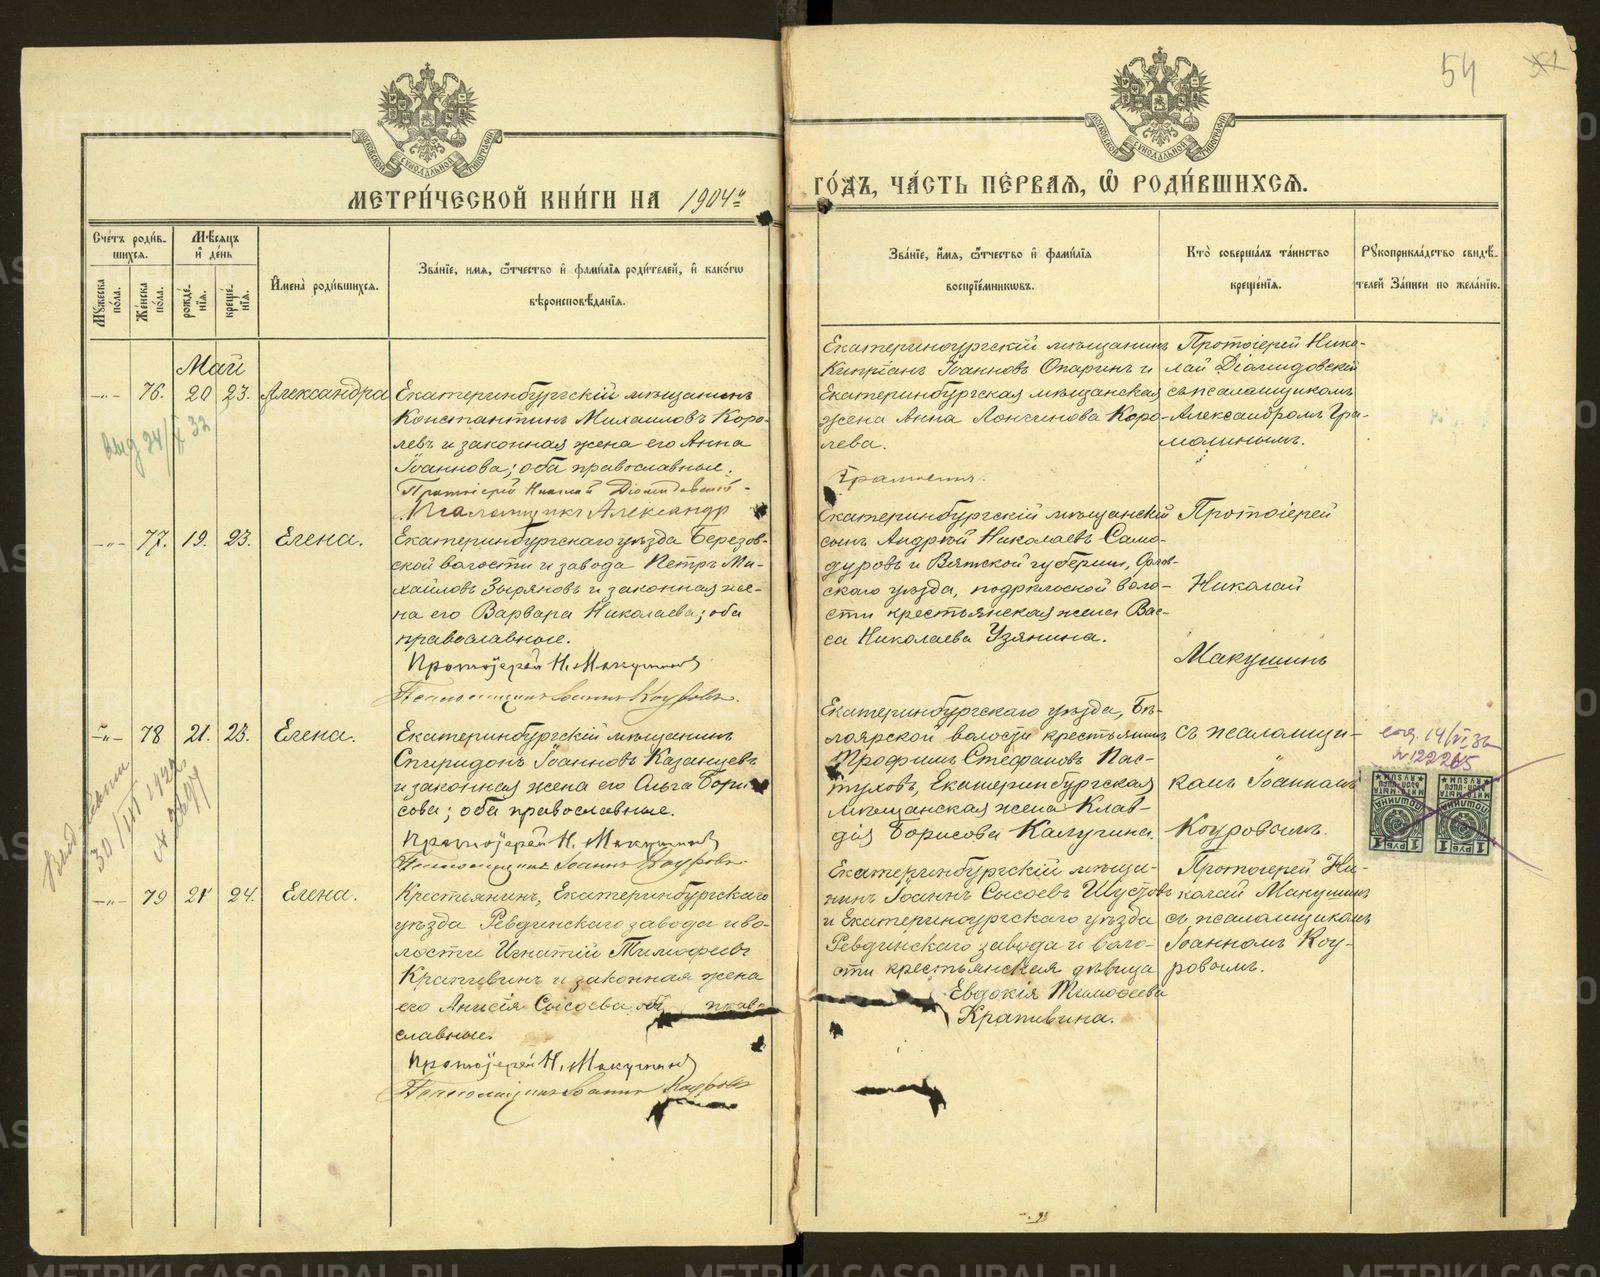 54
МОСКОВСКОЙ СѴНОДАЛЬНОЙ ТИПОГРАФІИ
МОСКОВСКОЙ СѴНОДАЛЬНОЙ ТИПОГРАФІИ
МЕТРИ́ЧЕСКОЙ КНИ́ГИ НА 1904й
ГО́ДЪ, ЧА́СТЬ ПЕ́РВАѦ, Ѡ҆ РОДИ́ВШИХСѦ.
Сче́тъ роди́в-
шихся.
Мꙋжеска по́ла.
Же́нска по́ла.
Мѣ́сяцъ и҆ де́нь
рожде́нїя.
креще́нїя.
И҆мена̀ роди́вшихся.
Зва́нїе, имя, ѻ҆́тчество и҆ фами́лїя роди́телей, и҆ како́гѡ
вѣроисповѣ́данїя.
Зва́нїе, и҆́мя, ѻ҆́тчество и҆ фами́лїя
воспрїе́мниковъ.
Кто̀ соверша́лъ та́инство
креще́нїя.
Рꙋкоприкла́дство свидѣ́-
телей За́писи по жела́нїю.
Май
-„- 76. 20 23. Александра
Екатеринбургскій мѣщанинъ
Константинъ Михаиловъ Коро-
левъ и законная жена его Анна
Іоаннова; оба православные.
Протоіерей Николай Діомидовскій
Псаломщикъ Александр
Екатеринбургскій мѣщанинъ
Кипріанъ Іоанновъ Опаринъ и
Екатеринбургская мѣщанская
жена Анна Лонгинова Коро-
лева.
Грамолинъ.
Протоіерей Нико-
лай Діомидовскій
съ псаломщикомъ
Александромъ Гра-
молинымъ.
выд 24/X 32
-„- 77. 19. 23. Елена.
Екатеринбургскаго уѣзда Березов-
ской волости и завода Петръ Ми-
хайловъ Зыряновъ и законная же-
на его Варвара Николаева; оба
православные.
Протоіерей Н. Макушинъ
Псаломщикъ Іоаннъ Коуровъ.
Екатеринбургскій мѣщанскій
сынъ Андрей Николаевъ Само-
дуровъ и Вятской губерніи, Орлов-
скаго уѣзда, подрѣльской воло-
сти крестьянская жена Вас-
са Николаева Узянина.
Протоіерей
Николай
Макушинъ
-„- 78 21. 23. Елена.
Екатеринбургскій мѣщанинъ
Спиридонъ Іоанновъ Казанцевъ
и законная жена его Ольга Бори-
сова; оба православные.
Протоіерей Н. Макушинъ
Псаломщикъ Іоаннъ Коуровъ
Екатеринбургскаго уѣзда, Бѣ-
лоярской волости крестьянинъ
Трофимъ Стефановъ Пас-
туховъ, Екатеринбургская
мѣщанская жена Клав-
дія Борисова Калугина.
съ псаломщи-
комъ Іоанномъ
Коуровымъ.
14/VI 32
№ 12226
1 РУБ 1
1 РУБ 1
30/VII 1922
-„- 79 21 24. Елена.
Крестьянинъ, Екатеринбургскаго
уѣзда Ревдинскаго завода и во-
лости Игнатій Тимофеевъ
Крапивинъ и законная жена
его Анисія Сысоева, оба право-
славные.
Протоіерей Н. Макушинъ
Псаломщикъ Іоаннъ Коуровъ
Екатеринбургскій мѣща-
нинъ Іоаннъ Сысоевъ Шустовъ
и Екатеринбургскаго уѣзда
Ревдинскаго завода и воло-
сти крестьянская дѣвица
Евдокія Тимофеева
Крапивина.
Протоіерей Ни-
колай Макушинъ
съ псаломщикомъ
Іоанномъ Коу-
ровымъ.
METRIKI.GASO-URAL.RU